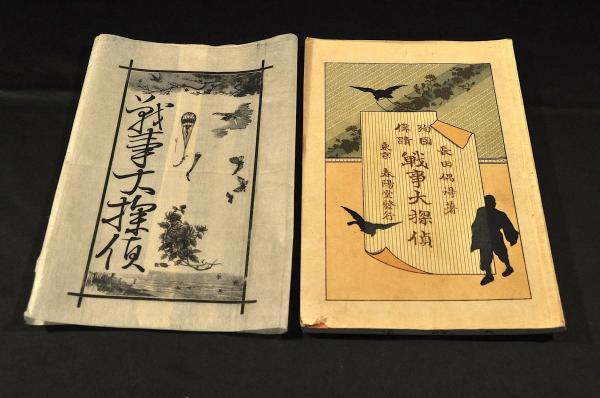 戦事大探偵
長田偶得著
殉国
偉蹟
戦事大探偵
東京 春陽堂發行